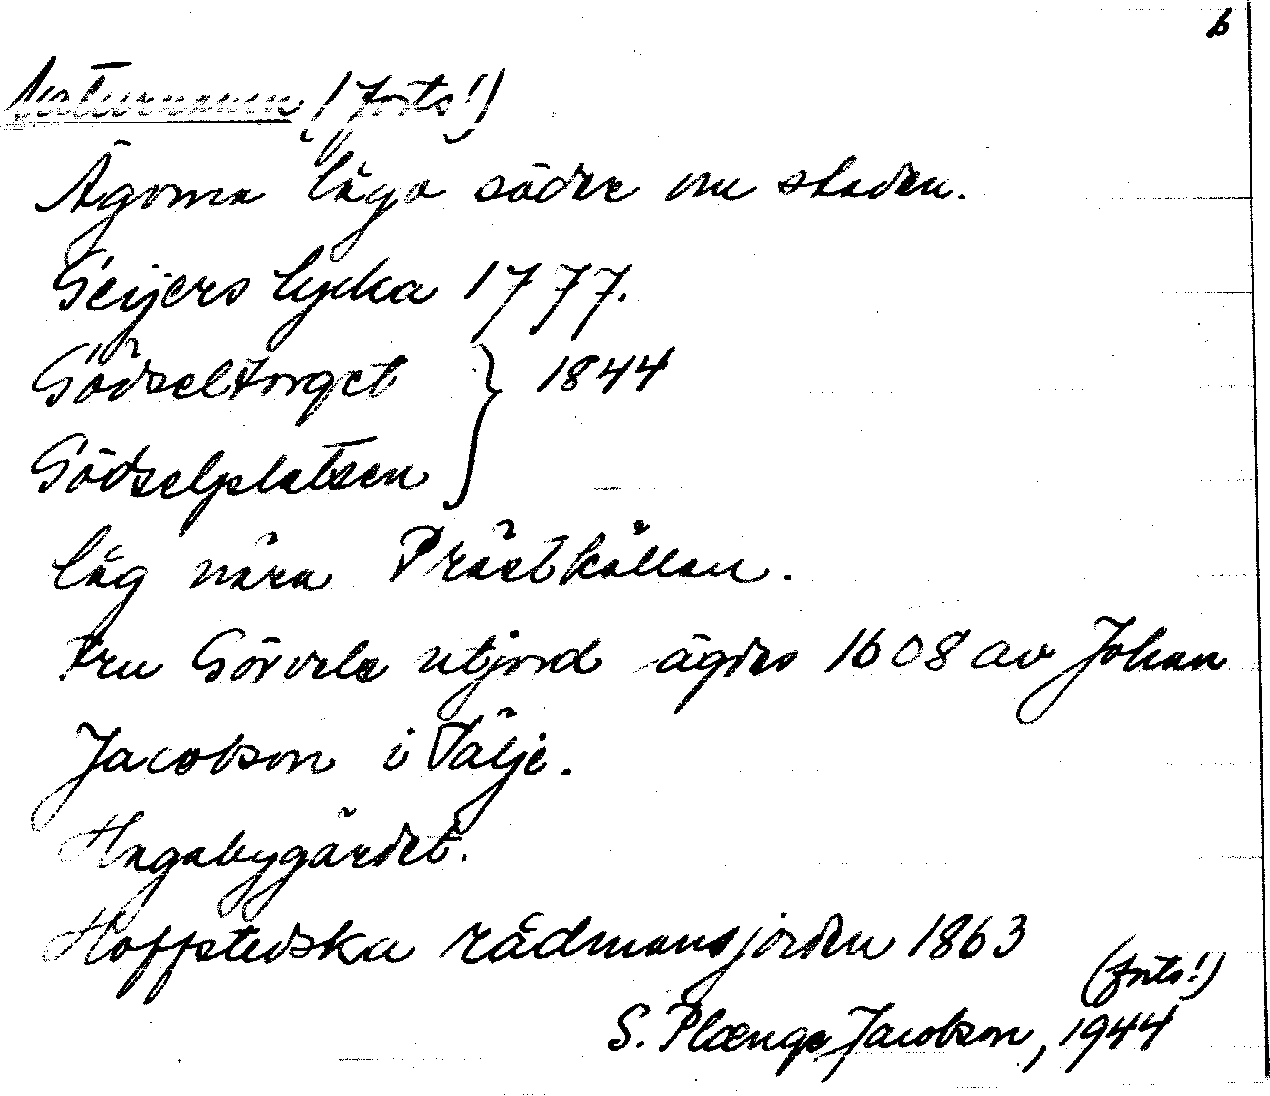 6
Naturnamn (forts!)
Ägorna låga söder om staden.
Geijers lycka 1777.
Gödseltorget } 1844
Gödselplatsen
låg nära Prästkällan.
Fru Görvels utjord ägdes 1608 av Johan
Jacobson i Tälje.
Hagabygärdet.
Hoffstedska rådmansjorden 1863
(forts!)
S. Plænge Jacobson, 1944